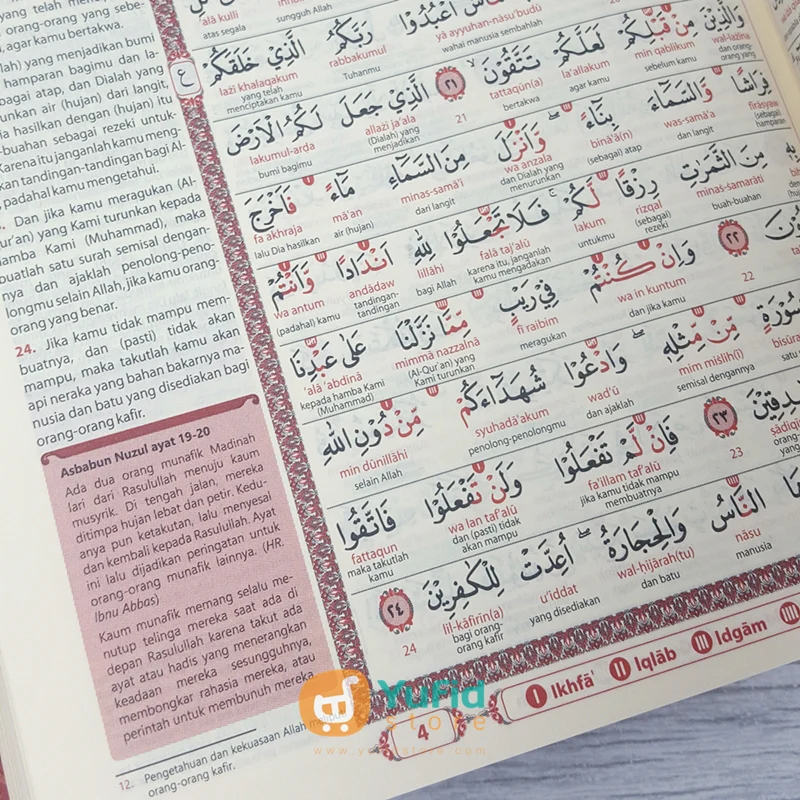 yang telah menja-
orang-orang yang sebe-
, agar kamu bertakwa.
lah) yang menjadikan bumi
hamparan bagimu dan la-
bagai atap, dan Dialah yang
unkan air (hujan) dari langit,
ia hasilkan dengan (hujan) itu
-buahan sebagai rezeki untuk-
Karena itu janganlah kamu meng-
kan tandingan-tandingan bagi Al-
, padahal kamu mengetahui.
Dan jika kamu meragukan (Al-
Qur'an) yang Kami turunkan kepada
hamba Kami (Muhammad), maka
buatlah satu surah semisal dengan-
nya dan ajaklah penolong-peno-
longmu selain Allah, jika kamu orang-
orang yang benar.
24. Jika kamu tidak mampu mem-
buatnya, dan (pasti) tidak akan
mampu, maka takutlah kamu akan
api neraka yang bahan bakarnya ma-
nusia dan batu yang disediakan bagi
orang-orang kafir.
Asbabun Nuzul ayat 19-20
Ada dua orang munafik Madinah
lari dari Rasulullah menuju kaum
musyrik. Di tengah jalan, mereka
ditimpa hujan lebat dan petir. Kedu-
anya pun ketakutan, lalu menyesal
dan kembali kepada Rasulullah. Ayat
ini lalu dijadikan peringatan untuk
orang-orang munafik lainnya. (HR.
Ibnu Abbas)
Kaum munafik memang selalu me-
nutup telinga mereka saat ada di
depan Rasulullah karena takut ada
ayat atau hadis yang menerangkan
keadaan mereka sesungguhnya,
membongkar rahasia mereka, atau
perintah untuk membunuh mereka.
12. Pengetahuan dan kekuasaan Allah
orang-orang kafir.
ع
'alā kulli
atas segala
sungguh Allah
اعْبُدُوْا رَبَّكُمُ الَّذِيْ خَلَقَكُمْ
yā ayyuhan-nāsu'budū rabbakumul lażī khalaqakum
wahai manusia sembahlah Tuhanmu yang telah menciptakan kamu
وَالَّذِيْنَ مِنْ قَبْلِكُمْ لَعَلَّكُمْ تَتَّقُوْنَ ٢١ الَّذِيْ جَعَلَ لَكُمُ الْاَرْضَ
wal-lażīna min qablikum la'allakum tattaqūn(a) allażī ja'ala lakumul-arḍa
dan orang-orang yang sebelum kamu agar kamu bertakwa 21 (Dialah) yang menjadikan bumi bagimu
فِرَاشًا وَّالسَّمَاۤءَ بِنَاۤءً وَّاَنْزَلَ مِنَ السَّمَاۤءِ مَاۤءً فَاَخْرَجَ
firāsyaw was-samā'a binā'ā(n) wa anzala minas-samā'i mā'an fa akhraja
(sebagai) hamparan dan langit (sebagai) atap dan Dialah yang menurunkan dari langit air (hujan) lalu Dia hasilkan
بِهٖ مِنَ الثَّمَرٰتِ رِزْقًا لَّكُمْ فَلَا تَجْعَلُوْا لِلّٰهِ اَنْدَادًا وَّاَنْتُمْ
minas-samarāti rizqal lakum falā taj'alū lillāhi andādaw wa antum
buah-buahan (sebagai) rezeki untukmu karena itu, janganlah kamu mengadakan bagi Allah tandingan-tandingan (padahal) kamu
٢٢ وَاِنْ كُنْتُمْ فِيْ رَيْبٍ مِّمَّا نَزَّلْنَا عَلٰى عَبْدِنَا
22 wa in kuntum fī raibim mimmā nazzalnā 'alā 'abdinā
dan jika kamu meragukan (Al-Qur'an) yang Kami turunkan kepada hamba Kami (Muhammad)
بِسُوْرَةٍ مِّنْ مِّثْلِهٖ وَادْعُوْا شُهَدَاۤءَكُمْ مِّنْ دُوْنِ اللّٰهِ
mim miślih(ī) wad'ū syuhadā'akum min dūnillāhi
semisal dengannya dan ajaklah penolong-penolongmu selain Allah
صٰدِقِيْنَ ٢٣ فَاِنْ لَّمْ تَفْعَلُوْا وَلَنْ تَفْعَلُوْا فَاتَّقُوا
23 fa'illam taf'alū wa lan taf'alū fattaqun
jika kamu tidak mampu membuatnya dan (pasti) tidak akan mampu maka takutlah kamu
النَّاسُ وَالْحِجَارَةُ اُعِدَّتْ لِلْكٰفِرِيْنَ ٢٤
nāsu wal-hijārah(tu) u'iddat lil-kāfirīn(a) 24
manusia dan batu yang disediakan bagi orang-orang kafir
4
I Ikhfā' II Iqlāb III Idgām
YuFid
store
www.yufidstore.com